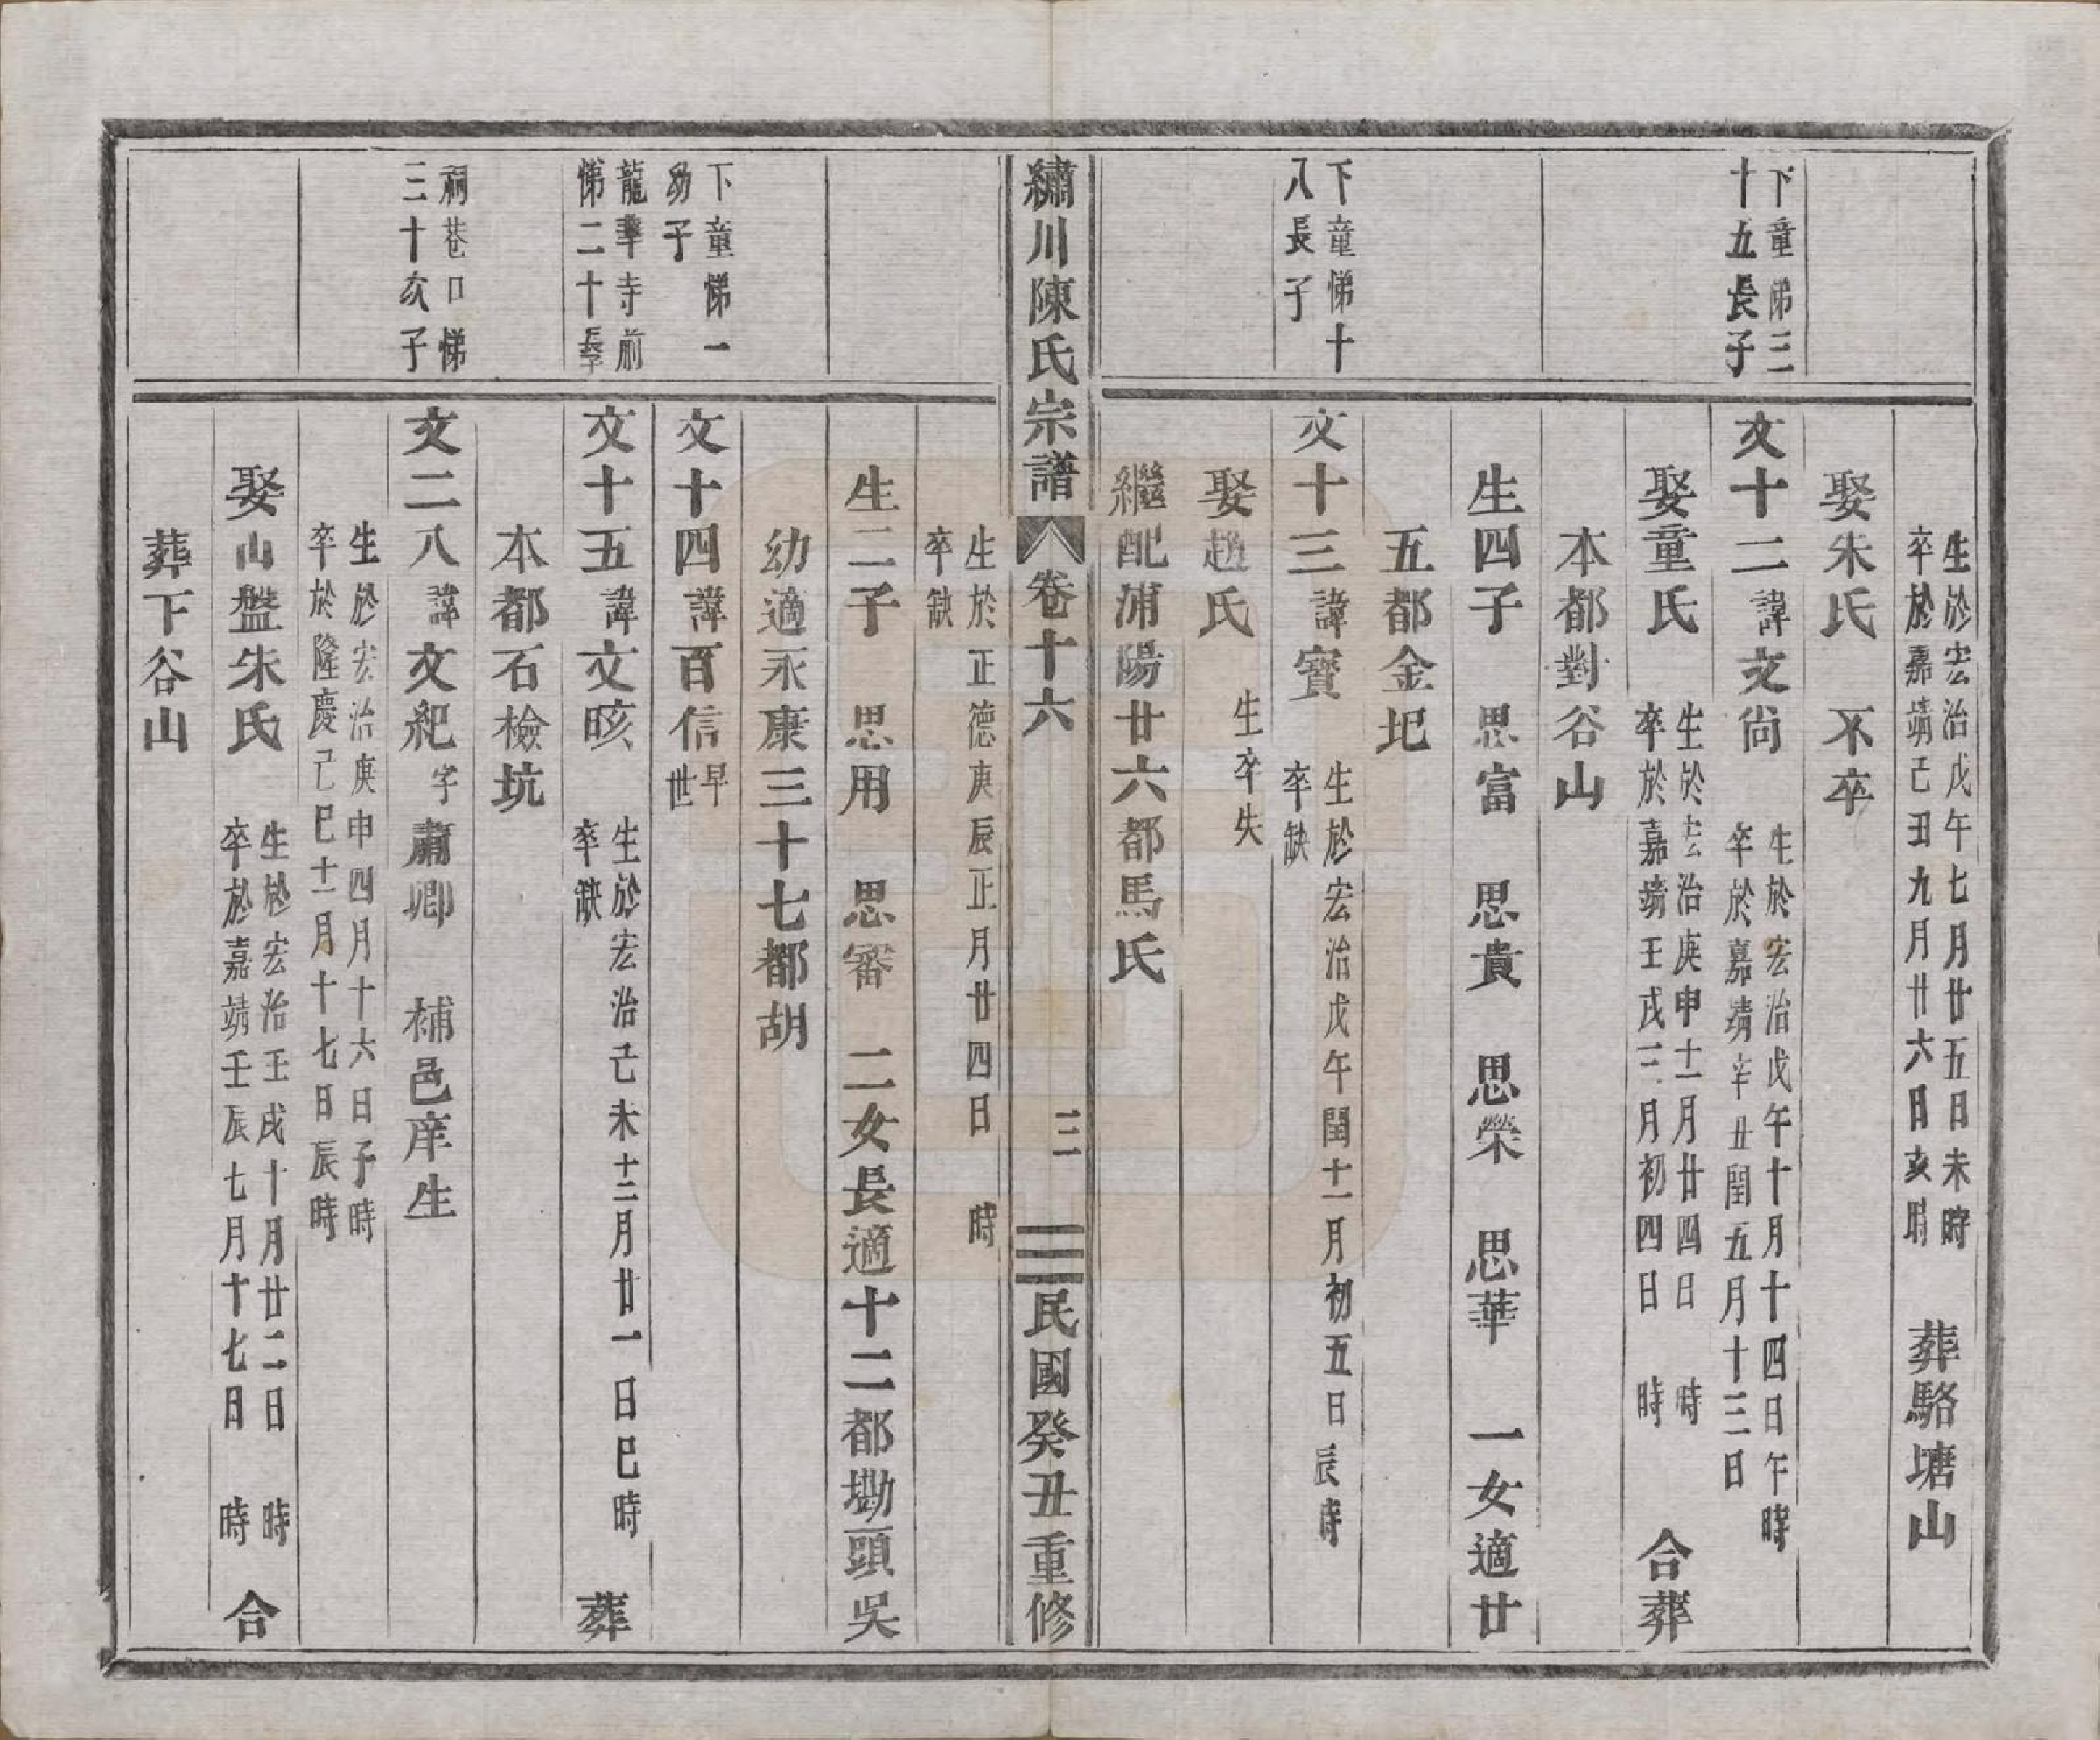 生於宏治戊午七月廿五日未時
卒於嘉靖己丑九月廿六日亥時
葬駱塘山
娶朱氏 不卒
下童悌三
十五長子
文十二諱文尚
生於宏治戊午十月十四日午時
卒於嘉靖辛丑閏五月十三日
娶童氏
生於宏治庚申十一月廿四日 時
卒於嘉靖壬戌三月初四日 時
合葬
本都對谷山
生四子 思富 思貴 思榮 思華 一女適廿
五都金圯
下童悌十
八長子
文十三諱寶
生於宏治戊午閏十一月初五日辰時
卒缺
娶趙氏
生卒失
繼配浦陽廿六都馬氏
繡川陳氏宗譜 卷十六 三 民國癸丑重修
生於正德庚辰正月廿四日 時
卒缺
生二子 思用 思審 二女長適十二都塘頭吳
幼適永康三十七都胡
下童悌一
幼子
文十四諱百信
早
世
龍華寺前
悌二十長子
文十五諱文晐
生於宏治己未十二月廿一日巳時
卒缺
葬
本都石檢坑
祠巷口悌
三十次子
文二八諱文紀字肅卿 補邑庠生
生於宏治庚申四月十六日子時
卒於隆慶己巳十一月十七日辰時
娶山盤朱氏
生於宏治壬戌十月廿二日 時
卒於嘉靖壬辰七月十七日 時
合
葬下谷山